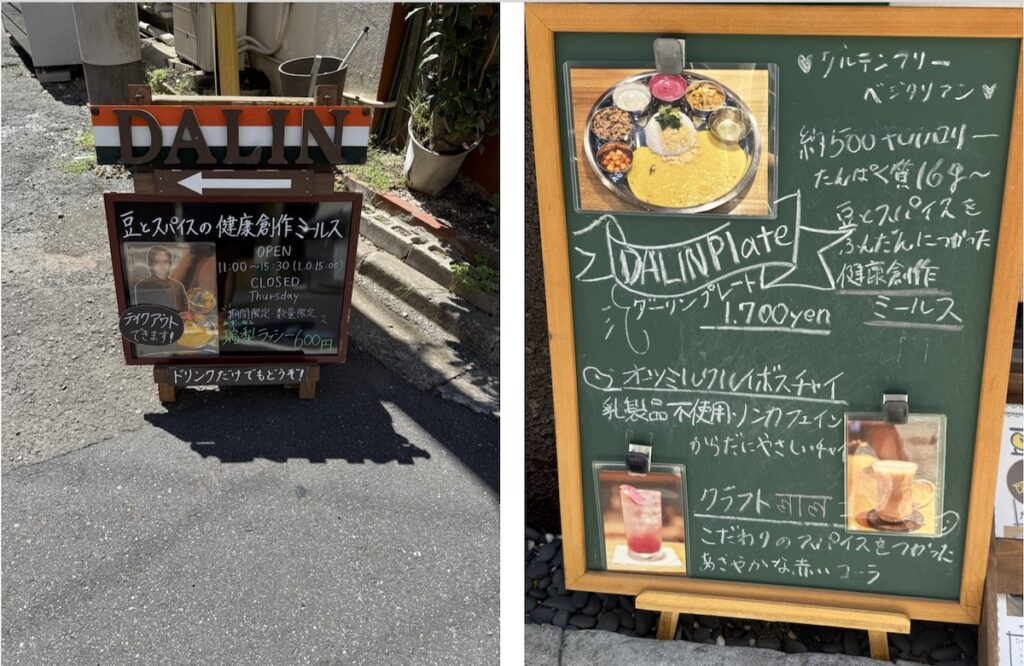 DALIN
豆とスパイスの健康創作ミールス
OPEN
11:00~15:30(L.O.15:00)
CLOSED
Thursday
期間限定 数量限定
瑞梨ラッシー600円
テイクアウト
できます!
ドリンクだけでもどうぞ!
グルテンフリー
ベジタリアン
約500キロカロリー
たんぱく質16g~
豆とスパイスを
ふんだんにつかった
健康創作
ミールス
DALIN Plate
ダーリンプレート
1.700yen
オーツミルクルイボスチャイ
乳製品不使用ノンカフェイン
からだにやさしいチャイ
クラフト लाल
こだわりのスパイスをつかった
あざやかな赤いコーラ